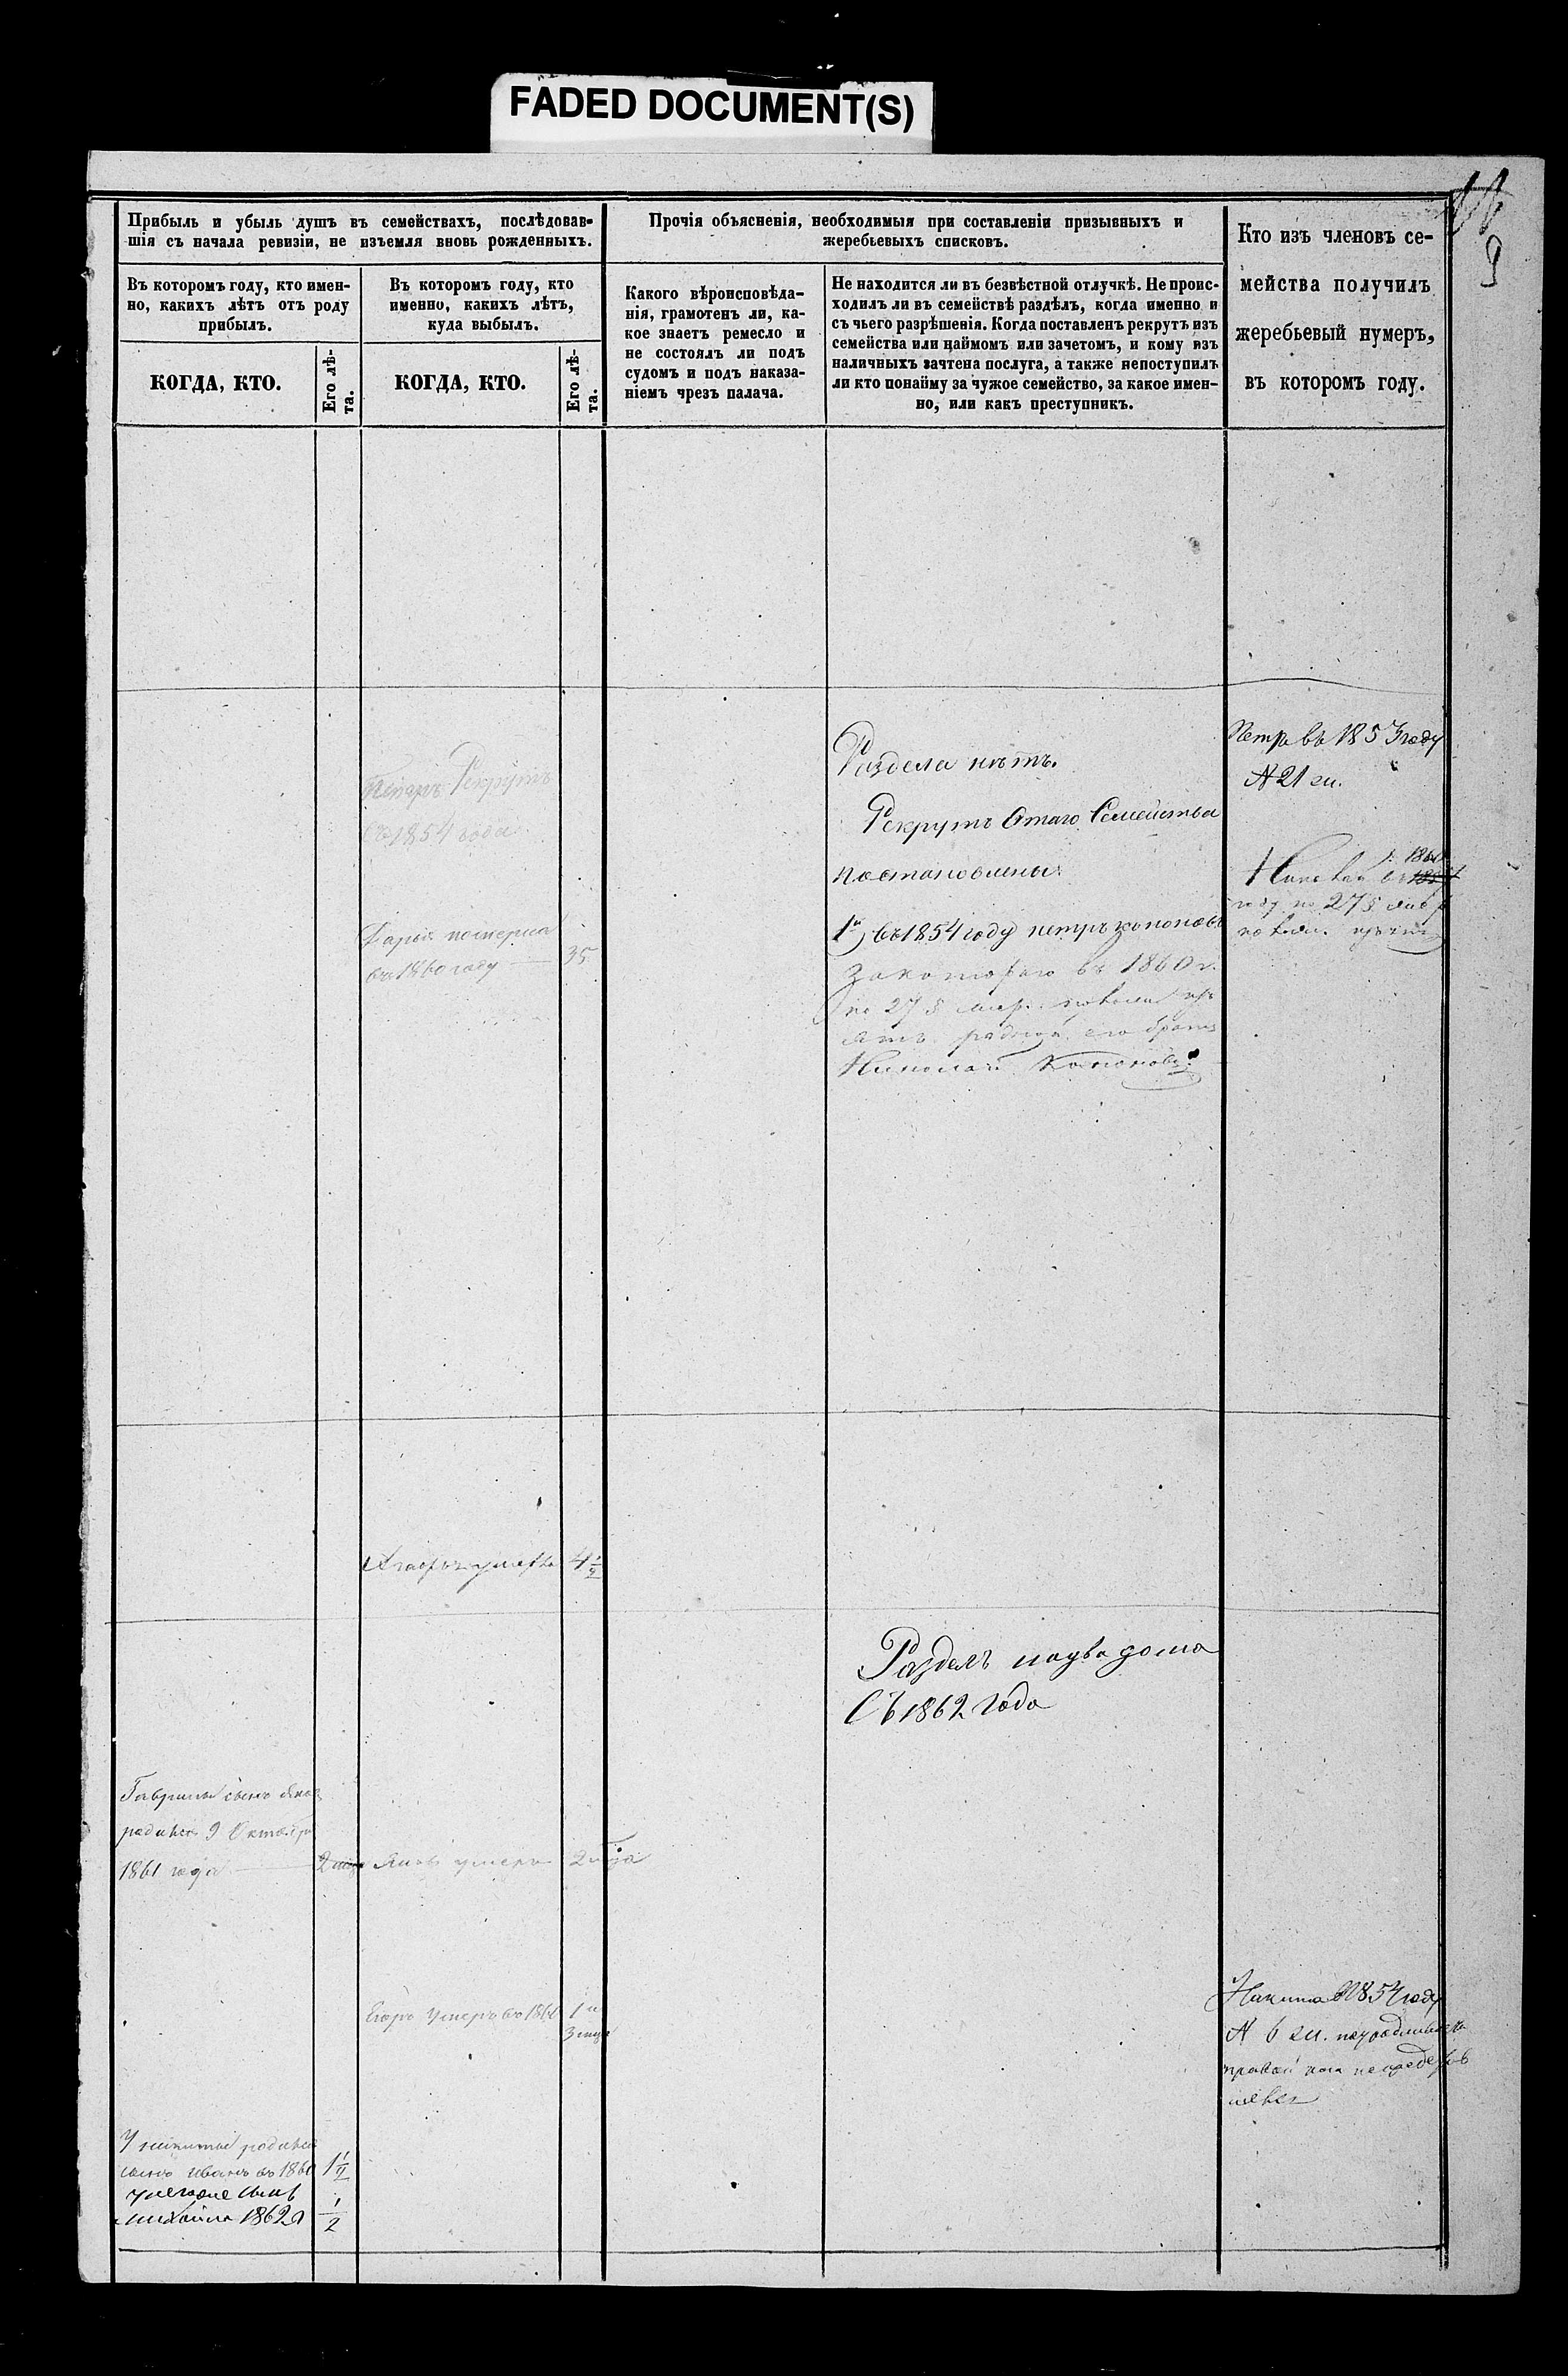 FADED DOCUMENT(S)
Прибыль и убыль душъ въ семействахъ, послѣдовав-
шія съ начала ревизіи, не изъемля вновь рожденныхъ.
Въ которомъ году, кто имен-
но, какихъ лѣтъ отъ роду
прибылъ.
Въ которомъ году, кто
именно, какихъ лѣтъ,
куда выбылъ.
КОГДА, КТО.
Его лѣ-
та.
КОГДА, КТО.
Его лѣ-
та.
Прочія объясненія, необходимыя при составленіи призывныхъ и
жеребьевыхъ списковъ.
Какого вѣроисповѣда-
нія, грамотенъ ли, ка-
кое знаетъ ремесло и
не состоялъ ли подъ
судомъ и подъ наказа-
ніемъ чрезъ палача.
Не находится ли въ безвѣстной отлучкѣ. Не проис-
ходилъ ли въ семействѣ раздѣлъ, когда именно и
съ чьего разрѣшенія. Когда поставленъ рекрутъ изъ
семейства или наймомъ или зачетомъ, и кому изъ
наличныхъ зачтена послуга, а также непоступилъ
ли кто понайму за чужое семейство, за какое имен-
но, или какъ преступникъ.
Кто изъ членовъ се-
мейства получилъ
жеребьевый нумеръ,
въ которомъ году.
9
Петръ Рекрутъ
Съ 1854 года
Дарья померла
въ 1860 году 35
Раздела нѣтъ.
Рекрутъ Отаго Семейства
поставлены:
1й) въ 1854 году петръ кононовъ
За котораго въ 1860 г.
по 275
родной его братъ
Николай Кононовъ.
Петръ въ 1853 году
№ 21 ж.
1860
Николай въ 1854
году по 275
умерла 4 1/2
Разделъ на два дома
Съ 1862 года
Гаврилы сынъ Яковъ
родился 9 Октября
1861 года
Яковъ умеръ 2 года
Егоръ умеръ въ 1860 1 и
3 мѣс
Никита в 1854 году
№ 6
правой
У никиты родился
сынъ иванъ въ 1860 1 1/2
у негоже сынъ
михайла 1862 1/2